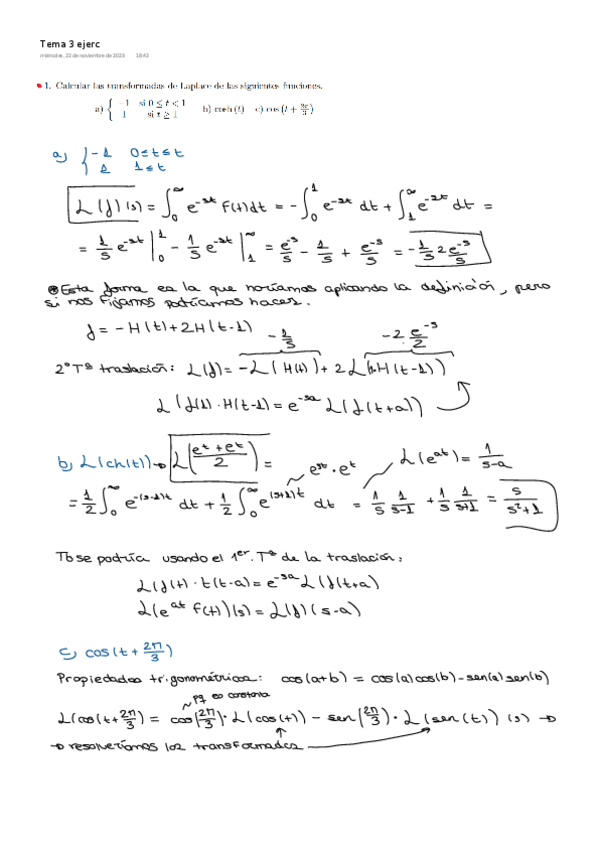 Tema 3 ejerc
miércoles, 22 de noviembre de 2023 18:42
1. Calcular las transformadas de Laplace de las siguientes funciones.
a) { -1 si 0 ≤ t < 1
1 si t ≥ 1 b) cosh (t) c) cos (t + 2π/3)
a) { -1 0≤t≤t
1 1≤t
L(f)(s) = ∫₀^∞ e^-st f(t)dt = - ∫₀^1 e^-st dt + ∫₁^∞ e^-st dt =
= 1/s e^-st |₀^1 - 1/s e^-st |₁^∞ = e^-s/s - 1/s + e^-s/s = -1/s 2e^-s/s
Esta forma es la que haríamos aplicando la definición, pero
si nos fijamos podríamos hacer.
f = -H(t)+2H(t-1) -1/s -2 e^-s/2
2º Tª traslación: L(f)= -L(H(t))+2L(1·H(t-1))
L(f(t)·H(t-1)) = e^-sa L(f(t+a))
b) L(ch(t)) → L(e^t+e^t/2) = e^st · e^t L(e^at) = 1/s-a
= 1/2 ∫₀^∞ e^-(s-1)t dt + 1/2 ∫₀^∞ e^(s+1)t dt = 1/s 1/s-1 + 1/s 1/s+1 = s/s²+1
Tb se podría usando el 1er. Tª de la traslación:
L(f(t)·t(t-a) = e^-sa L(f(t+a)
L(e^at f(t))(s) = L(f)(s-a)
c) cos(t + 2π/3)
Propiedades trigonométricas: cos(a+b) = cos(a)cos(b)-sen(a)sen(b)
pq es constante
L(cos(t+2π/3) = cos(2π/3)· L(cos(t)) - sen(2π/3)· L(sen(t)) (s) →
→ resolveríamos las transformadas